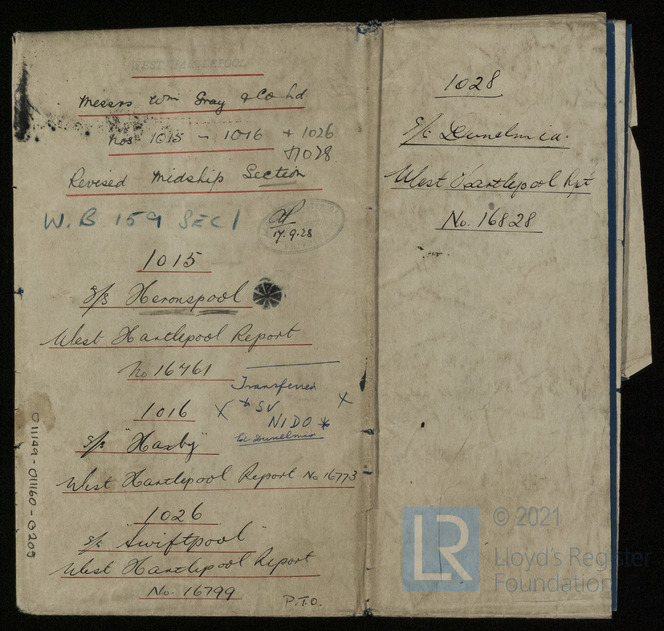 WEST HARTLEPOOL
Messrs Wm Gray & Co Ld
Nos 1015 - 1016 + 1026
+1028
Revised Midship Section
W.B 159 SEC 1
17.9.28
1015
S/S Heronspool
West Hartlepool Report
No 16461
Transferred
to SV
NIDO
1016
S/S "Haxby"
West Hartlepool Report No 16773
1026
S/S Swiftpool
West Hartlepool Report
No. 16799
P.T.O.
011149-011160-0209
1028
S/S Dunelmia.
West Hartlepool Rpt
No. 16828
LR
© 2021
Lloyd's Register
Foundation